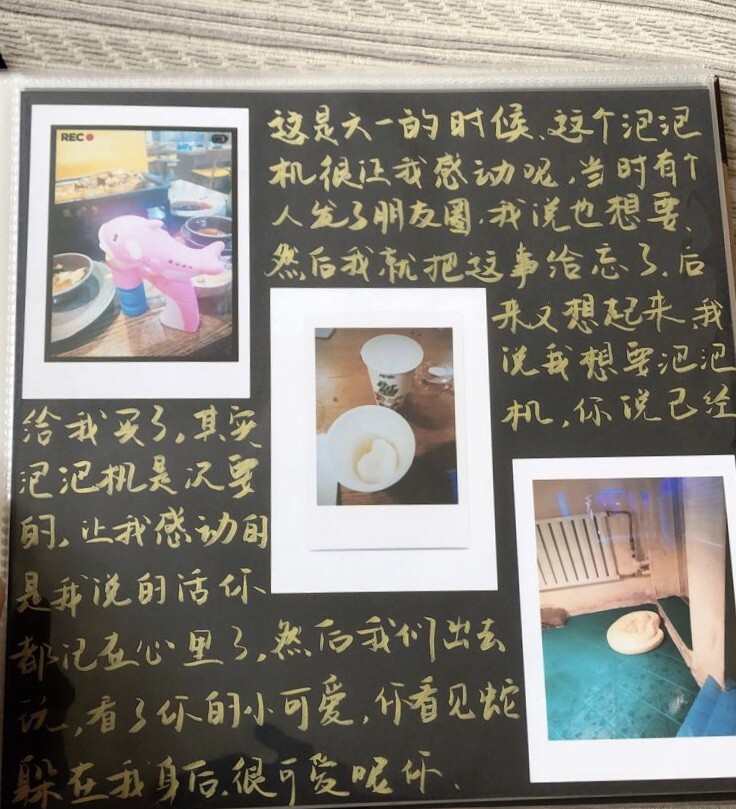 REC
这是大一的时候、这个泡泡
机很让我感动呢,当时有个
人发了朋友圈,我说也想要、
然后我就把这事给忘了,后
来又想起来,我
说我想要泡泡
机,你说已经
给我买了,其实
泡泡机是次要
的,让我感动的
是我说的话你
都记在心里了,然后我们出去
玩,看了你的小可爱,你看见蛇
躲在我身后,很可爱呢你、